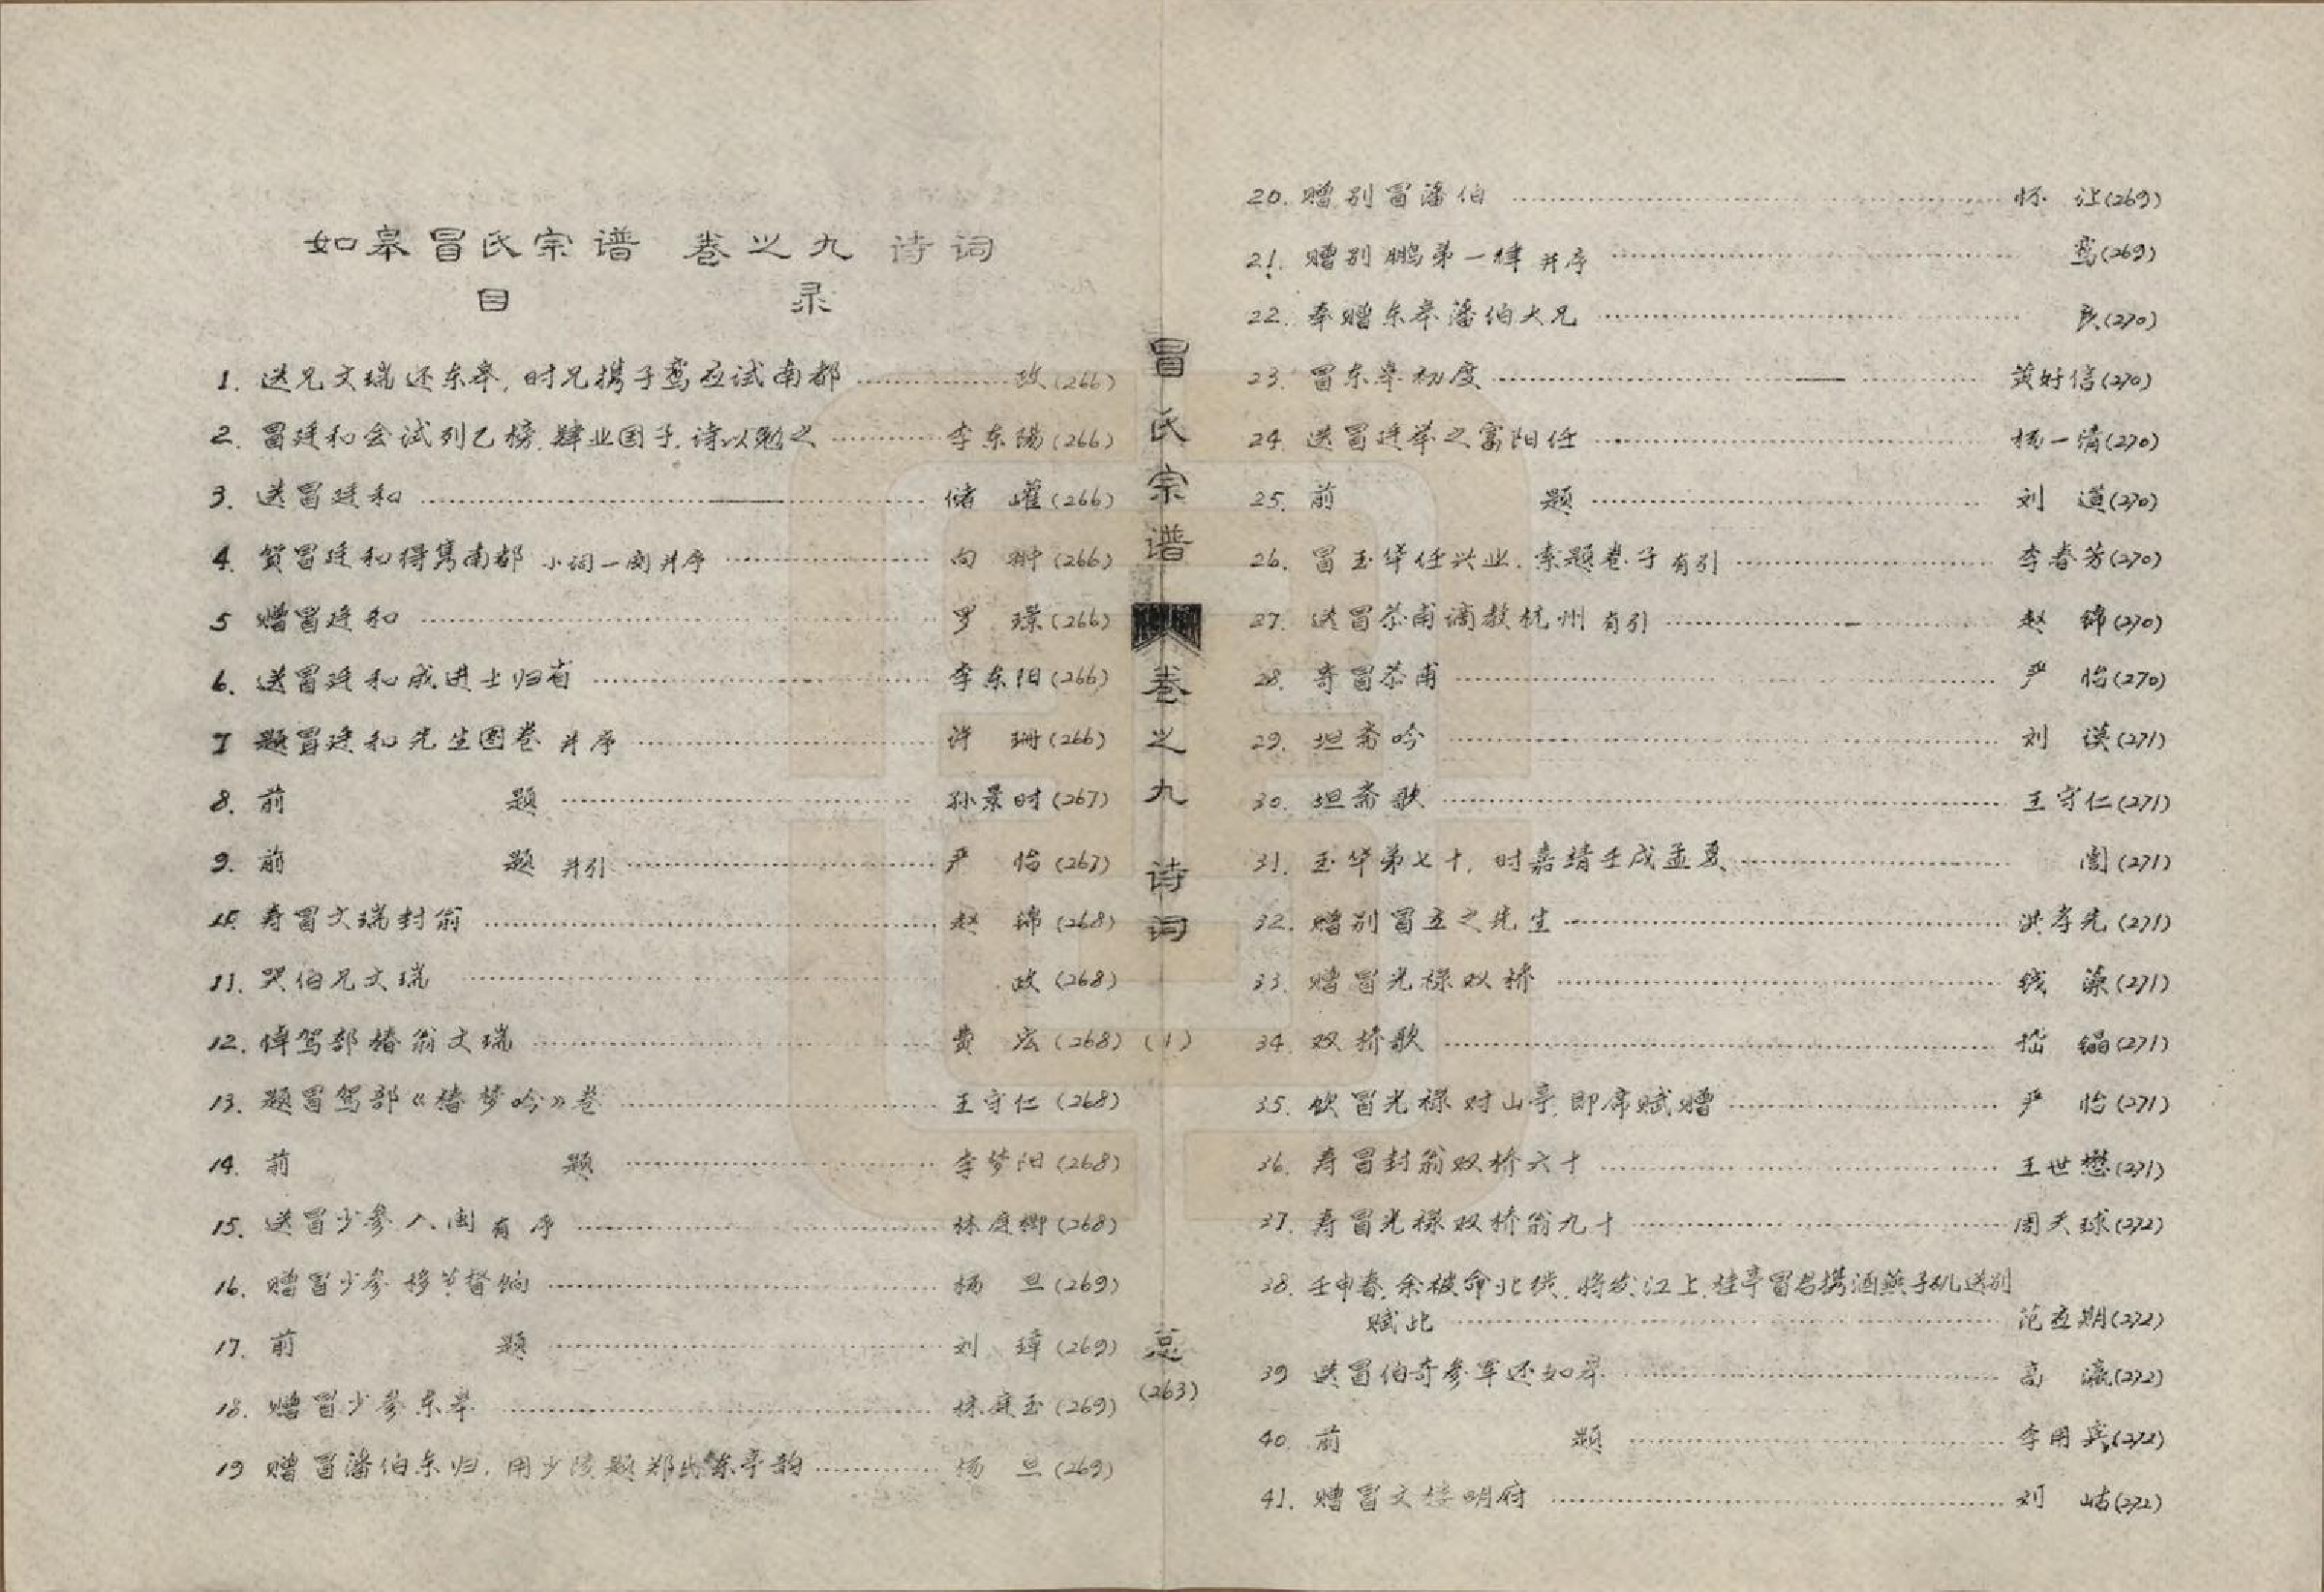 如皋冒氏宗谱 卷之九 诗词
目 录
1. 送兄文瑞还东皋，时兄携子鸾应试南都 …… 政(266)
2. 冒廷和会试列乙榜，肄业国子，诗以勉之 …… 李东陽(266)
3. 送冒廷和 …… 储 巏(266)
4. 贺冒廷和得隽南都 小词一阕并序 …… 向 翀(266)
5 赠冒廷和 …… 罗 璟(266)
6. 送冒廷和成进士归省 …… 李东阳(266)
7 题冒廷和先生图卷 并序 …… 许 珊(266)
8. 前 题 …… 孙景时(267)
9. 前 题 并引 …… 严 怡(267)
10 寿冒文瑞封翁 …… 赵 锦(268)
11. 哭伯兄文瑞 …… 政(268)
12. 悼驾部椿翁文瑞 …… 费 宏(268)
13. 题冒驾部《椿梦吟》卷 …… 王守仁(268)
14. 前 题 …… 李梦阳(268)
15. 送冒少参入闽 有序 …… 林庭㭿(268)
16. 赠冒少参移节督饷 …… 杨 旦(269)
17. 前 题 …… 刘 璋(269)
18. 赠冒少参东皋 …… 林庭玉(269)
19 赠冒藩伯东归，用少陵题郑氏东亭韵 …… 杨 旦(269)
冒氏宗谱 卷之九 诗词 (1) 总(263)
20. 赠别冒藩伯 …… 怀 让(269)
21. 赠别鹏弟一律 并序 …… 鸾(269)
22. 奉赠东皋藩伯大兄 …… 良(270)
23. 冒东皋初度 …… 黄好信(270)
24. 送冒廷举之富阳任 …… 杨一清(270)
25. 前 题 …… 刘 道(270)
26. 冒玉华任兴业，索题卷子 有引 …… 李春芳(270)
27. 送冒恭甫谪教杭州 有引 …… 赵 锦(270)
28. 寄冒恭甫 …… 严 怡(270)
29. 坦斋吟 …… 刘 谟(271)
30. 坦斋歌 …… 王守仁(271)
31. 玉华弟七十，时嘉靖壬戌孟夏 …… 訚(271)
32. 赠别冒立之先生 …… 洪孝先(271)
33. 赠冒光禄双桥 …… 钱 藻(271)
34. 双桥歌 …… 嵇 鐺(271)
35. 饮冒光禄对山亭，即席赋赠 …… 严 怡(271)
36. 寿冒封翁双桥六十 …… 王世懋(271)
37. 寿冒光禄双桥翁九十 …… 周天球(272)
38. 壬申春，余被命北徙，将发江上，桂亭冒君携酒燕子矶送别
赋此 …… 范应期(272)
39 送冒伯奇参军还如皋 …… 高 瀛(272)
40. 前 题 …… 李用宾(272)
41. 赠冒文楼明府 …… 刘 岵(272)